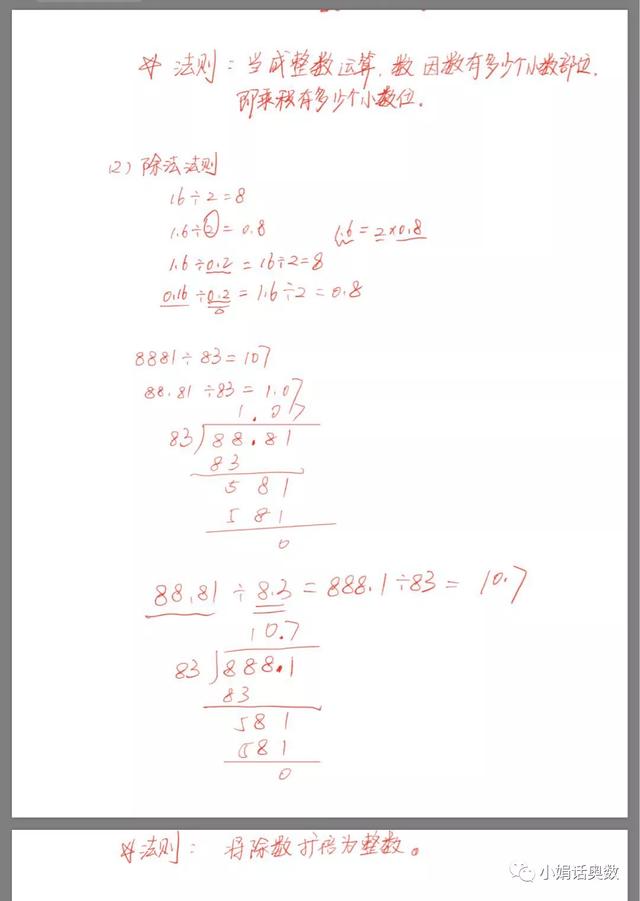 * 法则：当成整数运算，数因数有多少个小数部位，
即乘积有多少个小数位。
(2) 除法法则
16÷2=8
1.6÷2=0.8 1.6=2×0.8
1.6÷0.2=16÷2=8
0.16÷0.2=1.6÷2=0.8
8881÷83=107
88.81÷83=1.07
1.07
83 88.81
83
581
581
0
88.81÷8.3=888.1÷83=10.7
10.7
83 888.1
83
581
581
0
* 法则：将除数扩倍为整数。
小娟话奥数